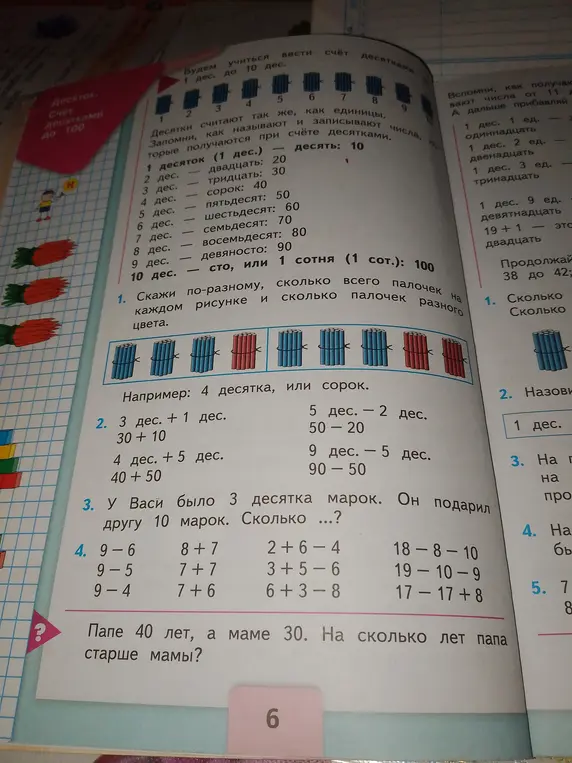 Десяток.
Счёт
десятками
до 100
Н
Будем учиться вести счёт десятками
1 дес. до 10 дес.
1 2 3 4 5 6 7 8 9
Десятки считают так же, как единицы.
Запомни, как называют и записывают числа,
торые получаются при счёте десятками.
1 десяток (1 дес.) — десять: 10
2 дес. — двадцать: 20
3 дес. — тридцать: 30
4 дес. — сорок: 40
5 дес. — пятьдесят: 50
6 дес. — шестьдесят: 60
7 дес. — семьдесят: 70
8 дес. — восемьдесят: 80
9 дес. — девяносто: 90
10 дес. — сто, или 1 сотня (1 сот.): 100
1. Скажи по-разному, сколько всего палочек на
каждом рисунке и сколько палочек разного
цвета.
Например: 4 десятка, или сорок.
2. 3 дес. + 1 дес. 5 дес. − 2 дес.
30 + 10 50 − 20
4 дес. + 5 дес. 9 дес. − 5 дес.
40 + 50 90 − 50
3. У Васи было 3 десятка марок. Он подарил
другу 10 марок. Сколько ...?
4. 9 − 6 8 + 7 2 + 6 − 4 18 − 8 − 10
9 − 5 7 + 7 3 + 5 − 6 19 − 10 − 9
9 − 4 7 + 6 6 + 3 − 8 17 − 17 + 8
?
Папе 40 лет, а маме 30. На сколько лет папа
старше мамы?
6
Вспомни, как получа
вают числа от 11 д
А дальше прибавляй
1 дес. 1 ед. —
одиннадцать
1 дес. 2 ед. —
двенадцать
1 дес. 3 ед. —
тринадцать
1 дес. 9 ед. —
девятнадцать
19 + 1 — это
двадцать
Продолжай
38 до 42;
1. Сколько
Сколько
2. Назови
1 дес.
3. На п
на
про
4. На
бы
5. 7
8